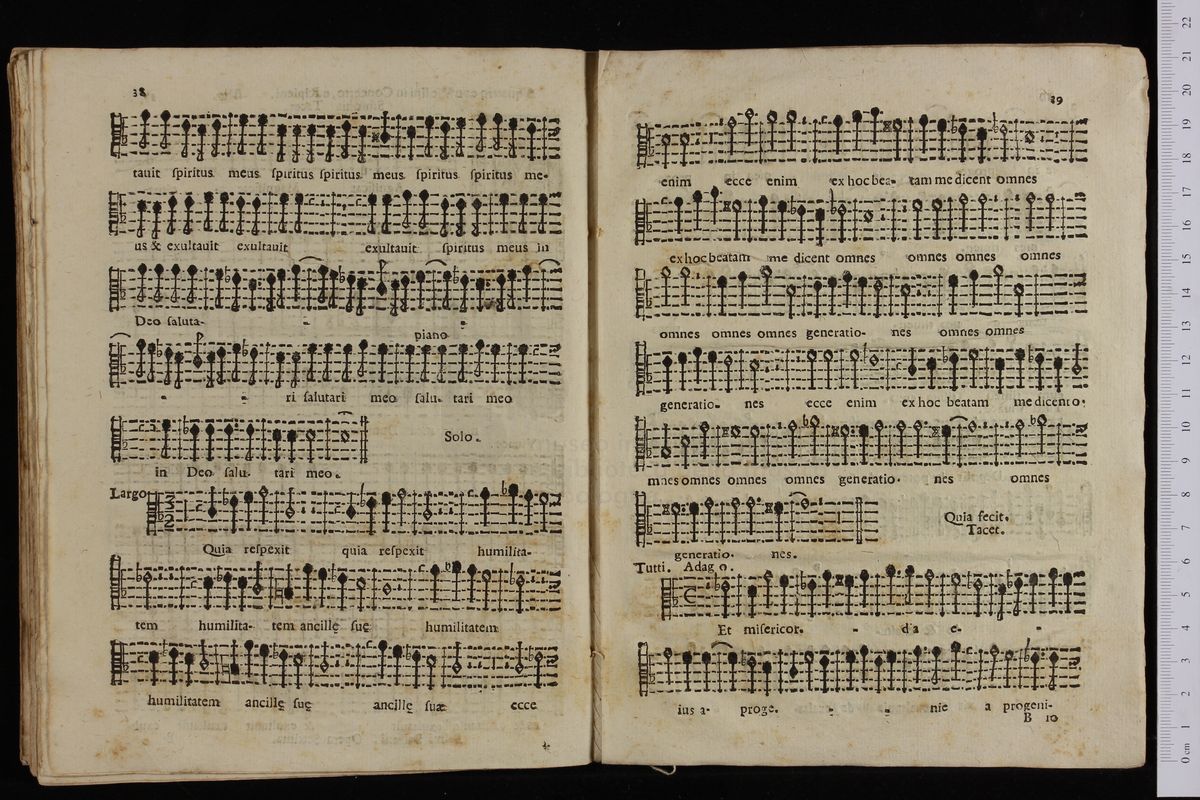 38
tauit ſpiritus meus ſpiritus ſpiritus meus ſpiritus ſpiritus me-
us & exultauit exultauit exultauit ſpiritus meus in
Deo ſaluta-
piano
ri ſalutari meo ſalu- tari meo
in Deo ſalu- tari meo.
Solo.
Largo
3
2
Quia reſpexit quia reſpexit humilita-
tem humilita- tem ancillę ſuę humilitatem
humilitatem ancillę ſuę ancillę ſuæ ecce
39
enim ecce enim ex hoc bea- tam me dicent omnes
ex hoc beatam me dicent omnes omnes omnes omnes
omnes omnes omnes generatio- nes omnes omnes
generatio- nes ecce enim ex hoc beatam me dicent o-
mnes omnes omnes omnes generatio- nes omnes
generatio- nes.
Quia fecit.
Tacet.
Tutti. Adag o
Et miſericor- d a e-
ius a- proge- nie a progeni-
B 10